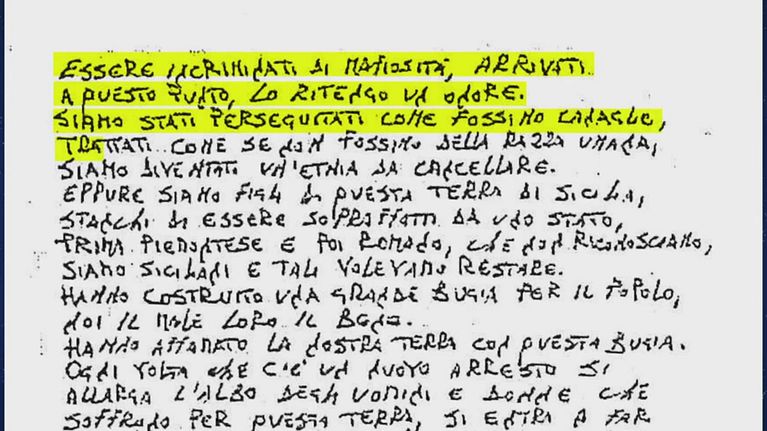 ESSERE INCRIMINATI DI MAFIOSITÀ, ARRIVATI
A QUESTO PUNTO, LO RITENGO UN ONORE.
SIAMO STATI PERSEGUITATI COME FOSSIMO CANAGLIE,
TRATTATI COME SE NON FOSSIMO DELLA RAZZA UMANA,
SIAMO DIVENTATI UN'ETNIA DA CANCELLARE.
EPPURE SIAMO FIGLI DI QUESTA TERRA DI SICILIA,
STANCHI DI ESSERE SOPRAFFATTI DA UNO STATO,
PRIMA PIEMONTESE E POI ROMANO, CHE NON RICONOSCIAMO,
SIAMO SICILIANI E TALI VOLEVAMO RESTARE.
HANNO COSTRUITO UNA GRANDE BUGIA PER IL POPOLO,
NOI IL MALE LORO IL BENE.
HANNO AFFAMATO LA NOSTRA TERRA CON QUESTA BUGIA.
OGNI VOLTA CHE C'È UN NUOVO ARRESTO SI
ALLARGA L'ALBO DEGLI UOMINI E DONNE CHE
SOFFRONO PER QUESTA TERRA, SI ENTRA A FAR